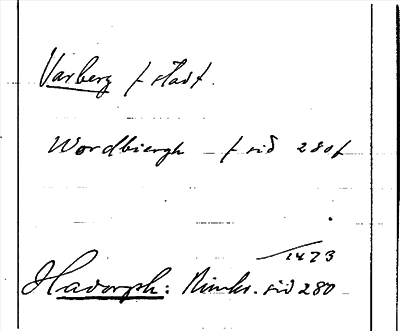 Varberg f stad.
Wordbiergh – f sid 280f
1473
Hadorph: Rimkr. sid 280